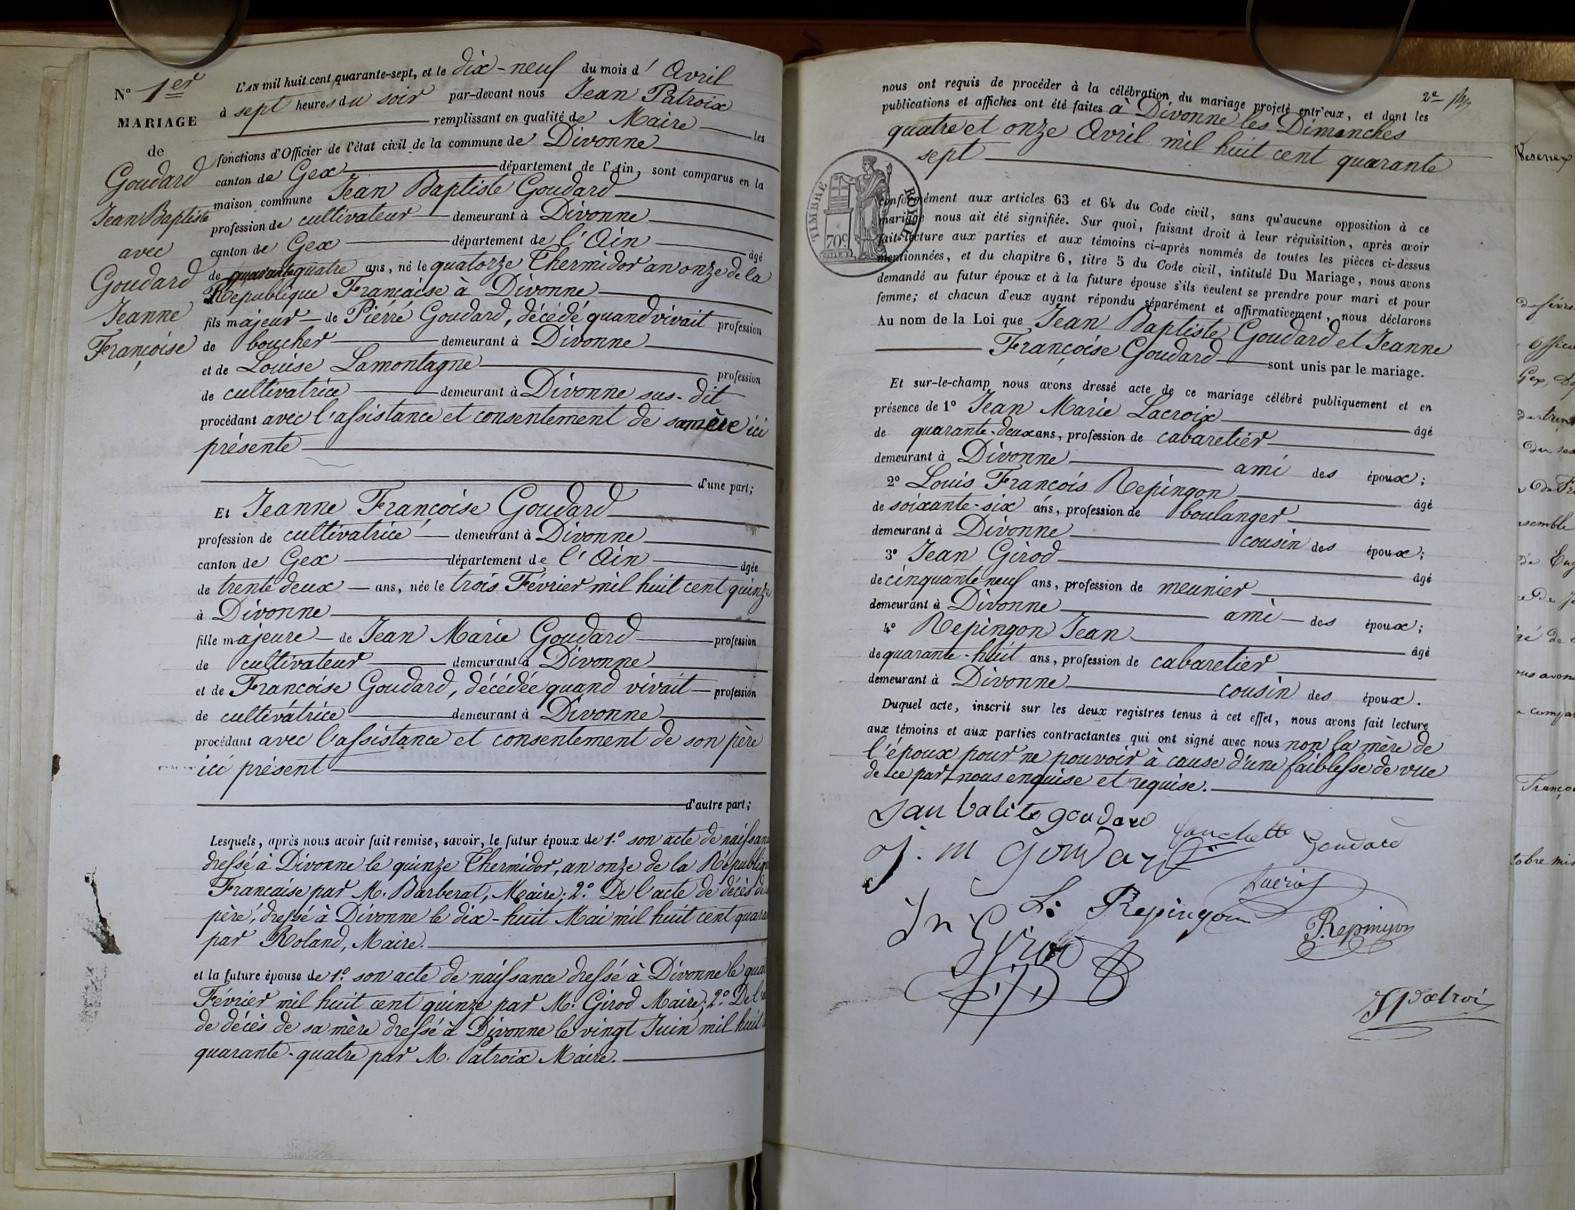 N° 1er
MARIAGE
de
Goudard
Jean Baptiste
avec
Goudard
Jeanne
Françoise
L'AN mil huit cent quarante-sept, et le dix-neuf du mois d'Avril
à sept heures du soir par-devant nous Jean Patroix
remplissant en qualité de Maire les
fonctions d'Officier de l'état civil de la commune de Divonne
canton de Gex département de l'Ain, sont comparus en la
maison commune Jean Baptiste Goudard
profession de cultivateur demeurant à Divonne
canton de Gex département de l'Ain âgé
de quarante quatre ans, né le quatorze Thermidor an onze de la
République Française à Divonne
fils majeur de Pierre Goudard, décédé quand vivait profession
de boucher demeurant à Divonne
et de Louise Lamontagne profession
de cultivatrice demeurant à Divonne sus-dit
procédant avec l'assistance et consentement de sa mère ici
présente
d'une part;
Et Jeanne Françoise Goudard
profession de cultivatrice demeurant à Divonne
canton de Gex département de l'Ain âgée
de trente deux ans, née le trois Février mil huit cent quinze
à Divonne
fille majeure de Jean Marie Goudard profession
de cultivateur demeurant à Divonne
et de Françoise Goudard, décédée quand vivait profession
de cultivatrice demeurant à Divonne
procédant avec l'assistance et consentement de son père
ici présent
d'autre part;
Lesquels, après nous avoir fait remise, savoir, le futur époux de 1.° son acte de naissan
dressé à Divonne le quinze Thermidor, an onze de la Républiq
Française par M. Barberat, Maire; 2.° De l'acte de décès de
père, dressé à Divonne le dix-huit Mai mil huit cent quara
par Roland, Maire.
et la future épouse de 1.° son acte de naissance dressé à Divonne le qua
Février mil huit cent quinze par M. Girod Maire; 2.° De l'a
de décès de sa mère dressé à Divonne le vingt Juin mil huit
quarante-quatre par M. Patroix Maire.
2e
nous ont requis de procéder à la célébration du mariage projeté entr'eux, et dont les
publications et affiches ont été faites à Divonne les Dimanches
quatre et onze Avril mil huit cent quarante
sept
TIMBRE ROYAL
70c
conformément aux articles 63 et 64 du Code civil, sans qu'aucune opposition à ce
mariage nous ait été signifiée. Sur quoi, faisant droit à leur réquisition, après avoir
fait lecture aux parties et aux témoins ci-après nommés de toutes les pièces ci-dessus
mentionnées, et du chapitre 6, titre 5 du Code civil, intitulé Du Mariage, nous avons
demandé au futur époux et à la future épouse s'ils veulent se prendre pour mari et pour
femme; et chacun d'eux ayant répondu séparément et affirmativement, nous déclarons
Au nom de la Loi que Jean Baptiste Goudard et Jeanne
Françoise Goudard sont unis par le mariage.
Et sur-le-champ nous avons dressé acte de ce mariage célébré publiquement et en
présence de 1° Jean Marie Lacroix âgé
de quarante-deux ans, profession de cabaretier
demeurant à Divonne ami des époux;
2° Louis François Repingon âgé
de soixante-six ans, profession de boulanger
demeurant à Divonne cousin des époux;
3° Jean Girod âgé
de cinquante neuf ans, profession de meunier
demeurant à Divonne ami des époux;
4° Repingon Jean âgé
de quarante-huit ans, profession de cabaretier
demeurant à Divonne cousin des époux.
Duquel acte, inscrit sur les deux registres tenus à cet effet, nous avons fait lecture
aux témoins et aux parties contractantes qui ont signé avec nous non la mère de
l'époux pour ne pouvoir à cause d'une faiblesse de vue
de ce par nous enquise et requise.
Jan batite goudard
fanchette Goudard
J. M Goudard
Lacroix
L: Repingon
Repingon
Jn Girod
JPatroix